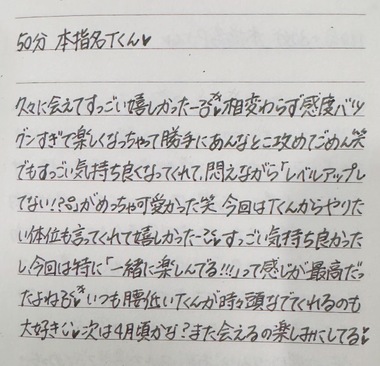 50分 本指名Tくん♥
久々に会えてすっごい嬉しかったー 相変わらず感度バツ
グンすぎて楽しくなっちゃって勝手にあんなとこ攻めてごめん笑
でもすっごい気持ち良くなってくれて、悶えながら「レベルアップし
てない!?」がめっちゃ可愛かった笑 今回はTくんからやりた
い体位も言ってくれて嬉しかったー すっごい気持ち良かった
し、今回は特に「一緒に楽しんでる!!!」って感じが最高だっ
たよね いつも腰低いTくんが時々頭なでてくれるのも
大好き 次は4月頃かな?また会えるの楽しみにしてる♥